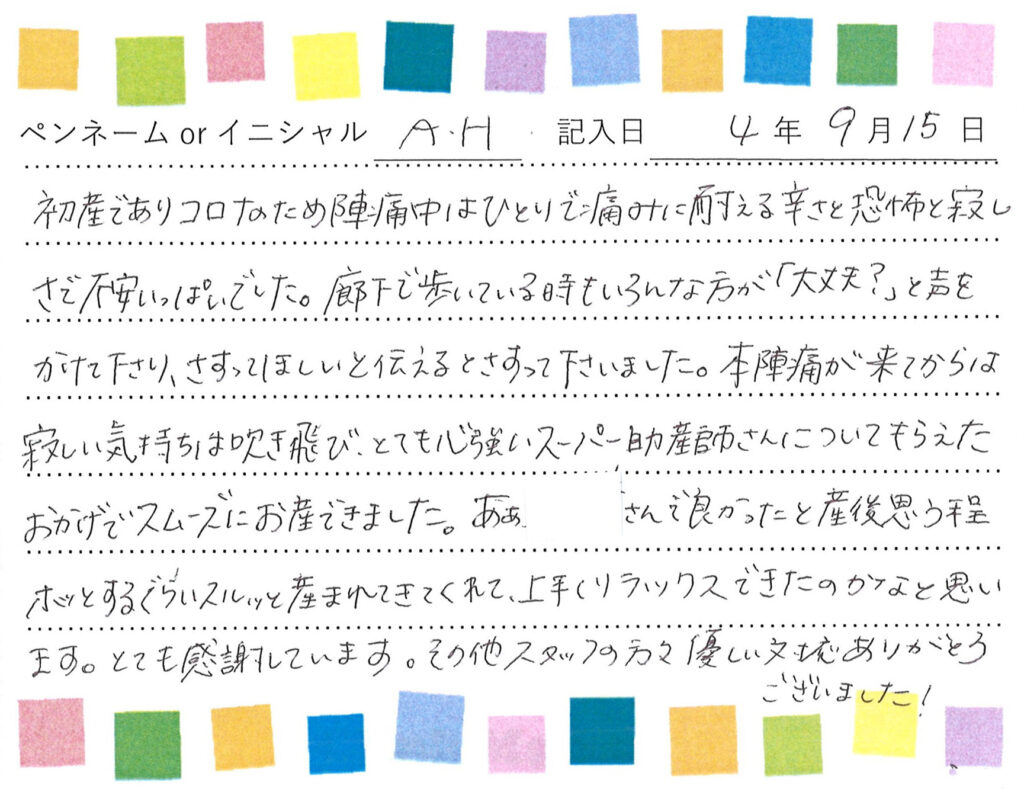 ペンネーム or イニシャル A・H 記入日 4年 9月15日
初産でありコロナのため陣痛中はひとりで痛みに耐える辛さと恐怖と寂し
さで不安いっぱいでした。廊下で歩いている時もいろんな方が「大丈夫?」と声を
かけて下さり、さすってほしいと伝えるとさすって下さいました。本陣痛が来てからは
寂しい気持ちは吹き飛び、とても心強いスーパー助産師さんについてもらえた
おかげでスムーズにお産できました。あぁ さんで良かったと産後思う程
ホッとするぐらいスルッと産まれてきてくれて、上手くリラックスできたのかなと思い
ます。とても感謝しています。その他スタッフの方々優しい対応ありがとう
ございました!